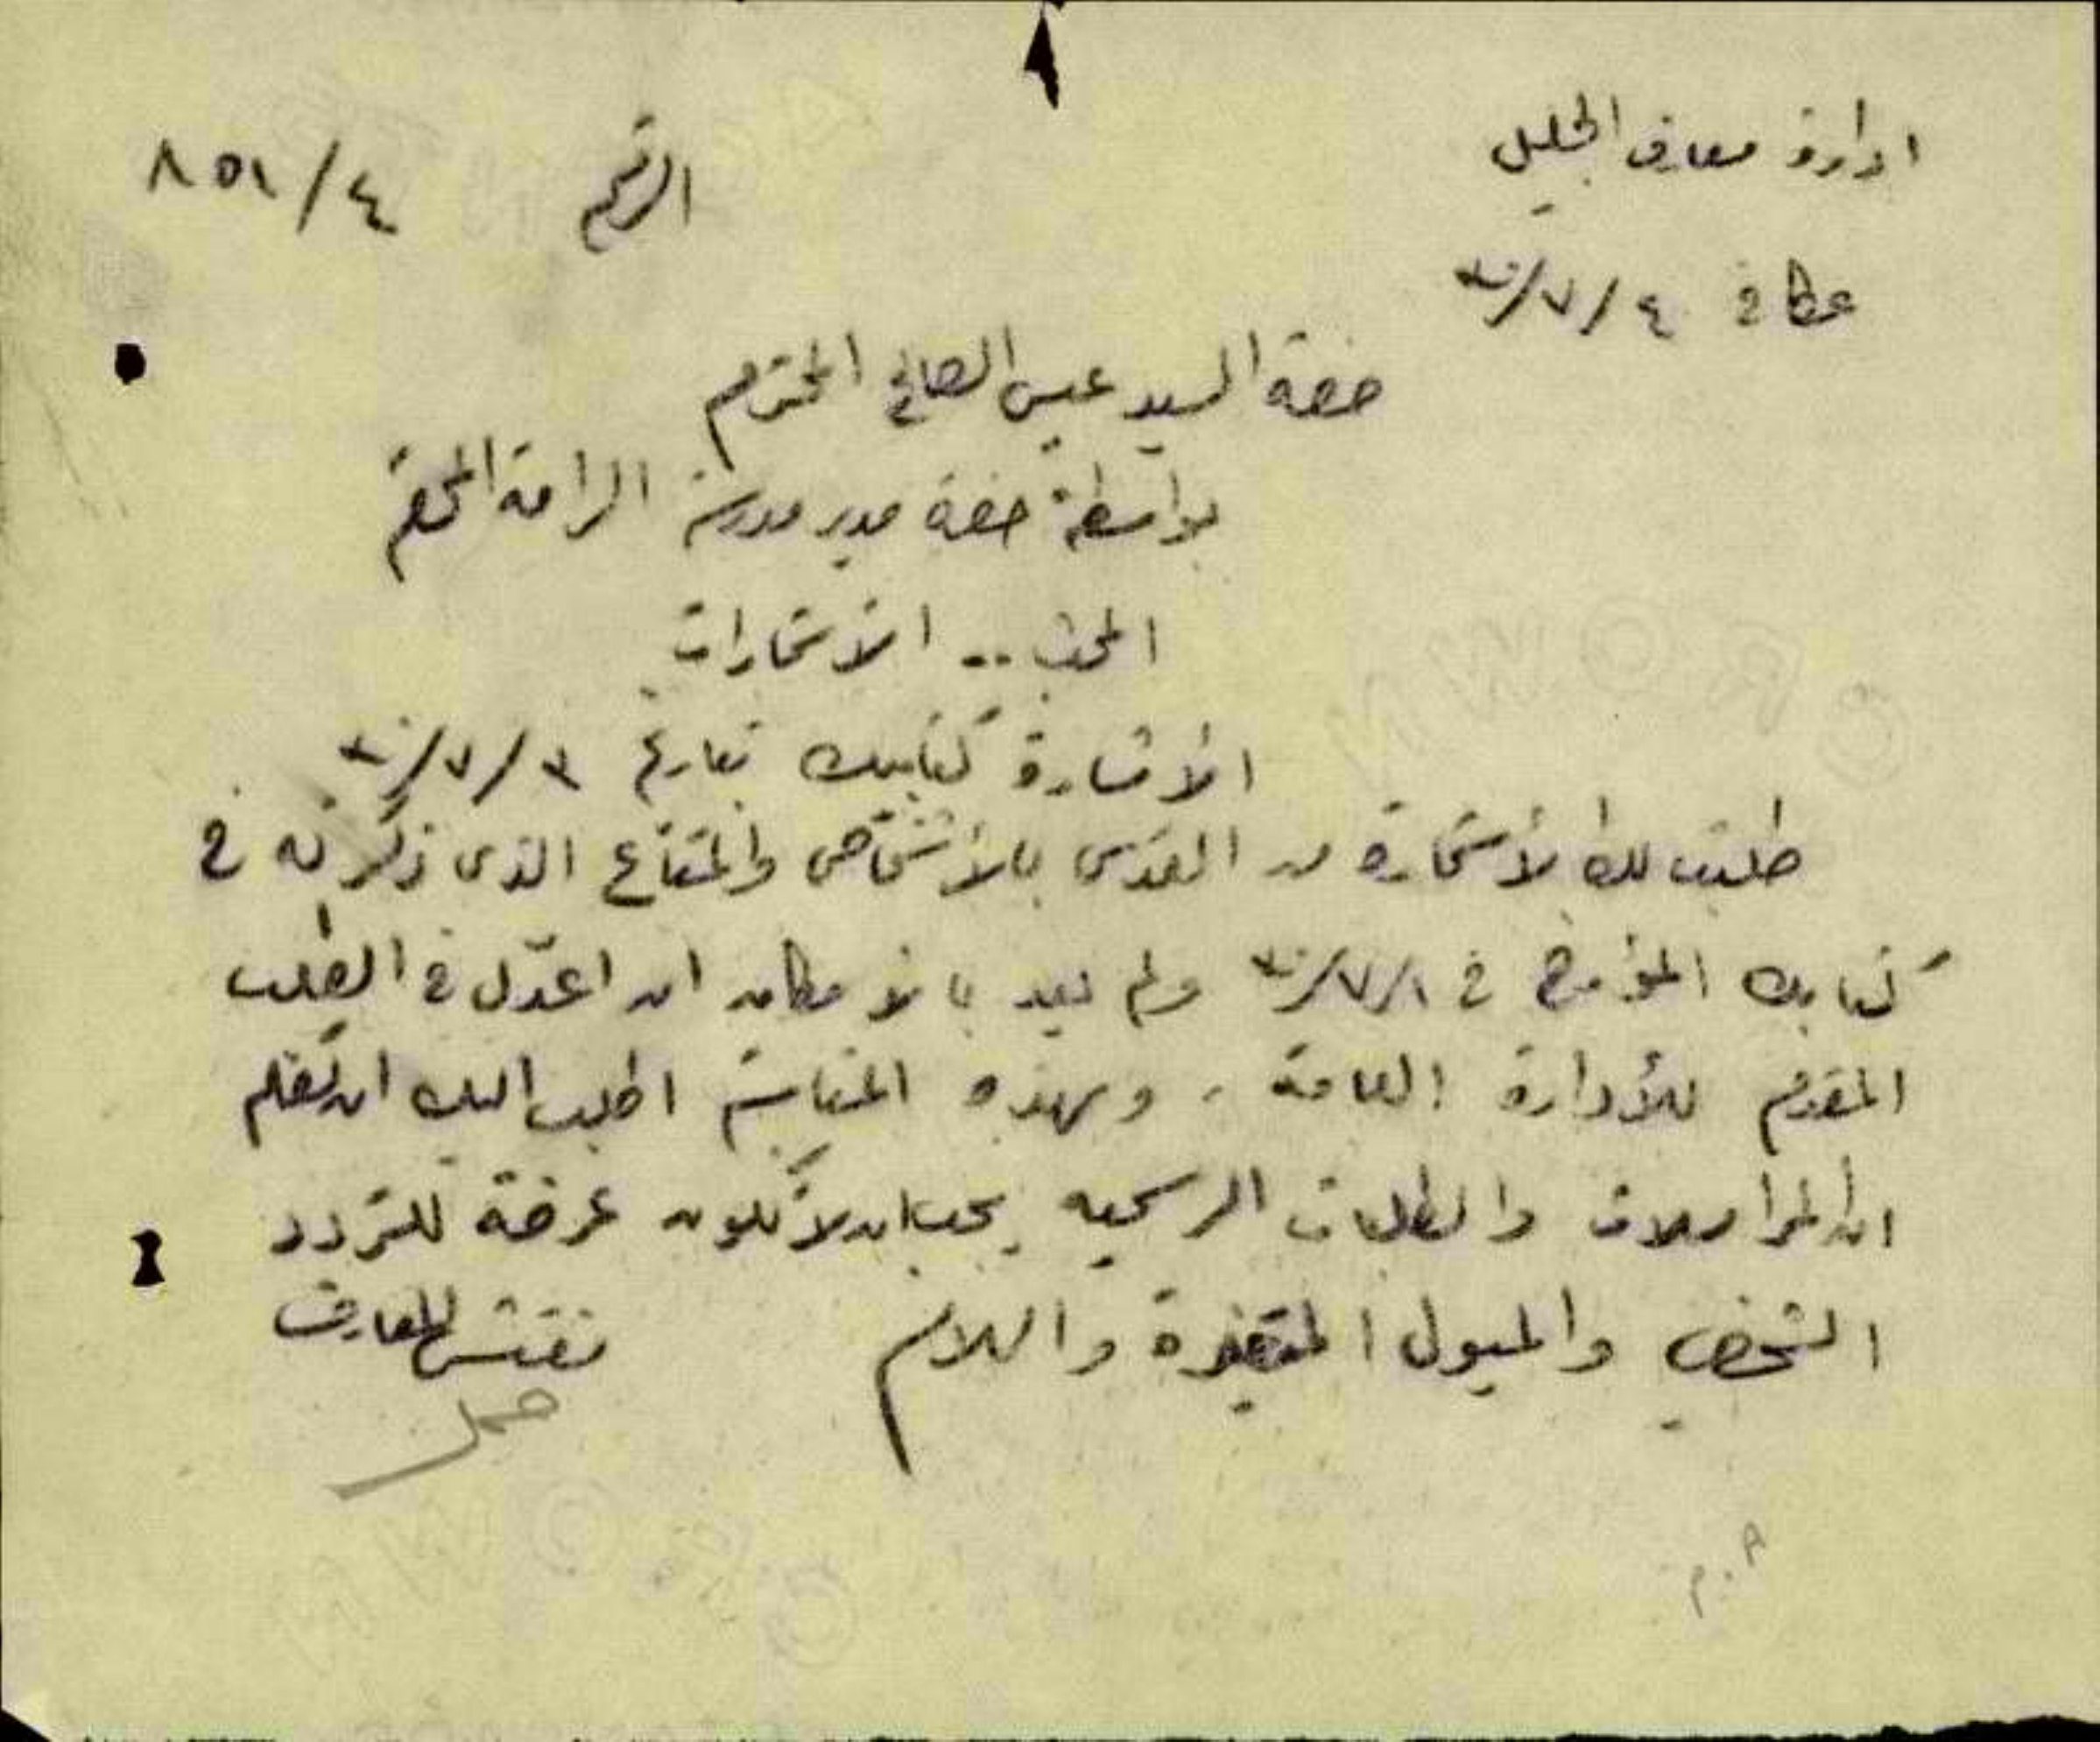 ادارة معارف الجليل
الرقم ٤/٨٥١
عكا في ٤/٧/٣٠
حضرة السيد عيسى الصالح المحترم
بواسطة حضرة مدير مدرسة الرامة المحترم
المبحث .. الاستمارات
الأشارة كتابك تاريخ ٣/٧/٣٠
طلبت لك الأستمارة من القدس بالأشخاص والمتاع الذي ذكرته في
كتابك المؤرخ في ١/٧/٣٠ ولم يعد بالأمكان ان اعدّل في الطلب
المقدم للأدارة العامة . وبهذه المناسبة اطلب اليك ان تعلم
ان المراسلات والطلبات الرسميه يجب ان لا تكون عرضة للتردد
الشخصي والميول المتغيرة والسلام
مفتش المعارف